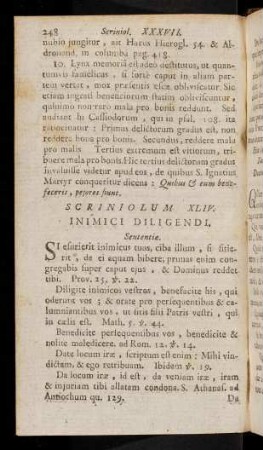 248 Scriniol. XXXVII.
nubio jungitur, ait Horus Hierogl. 54. & Al-
drovand. in columba pag. 418.
10. Lynx memoria est adeo destitutus, ut quan-
tumvis famelicus, si forte caput in aliam par-
tem vertat, mox præsentis cibi obliviscatur. Sic
etiam ingrati beneficiorum statim obliviscuntur,
quinimo non raro mala pro bonis reddunt. Sed
audiant
Cassiodorum, qui in psal. 108. ita
ratiocinatur: Primus delictorum gradus est, non
reddere bona pro bonis. Secundus, reddere mala
pro malis Tertius extremum est vitiorum, tri-
buere mala pro bonis. Hic tertius delictorum gradus
invaluisse videtur apud eos, de quibus S. Ignatius
Martyr conqueritur dicens: Quibus & cum bene-
feceris, pejores fiunt.
SCRINIOLUM XLIV.
INIMICI DILIGENDI.
Sententiæ.
SI esurierit inimicus tuus, ciba illum, si sitie-
rit, da ei aquam bibere; prunas enim con-
gregabis super caput ejus, & Dominus reddet
tibi. Prov. 25. ℣. 22.
Diligite inimicos vestros, benefacite his, qui
oderunt vos; & orate pro persequentibus & ca-
lumniantibus vos, ut sitis filii Patris vestri, qui
in cælis est. Math. 5. ℣. 44.
Benedicite persequentibus vos, benedicite &
nolite maledicere. ad Rom. 12. ℣. 14.
Date locum iræ, scriptum est enim: Mihi vin-
dictam, & ego retribuam. Ibidem ℣. 19.
Da locum iræ, id est, da veniam iræ, iram
& injuriam tibi allatam condona. S. Athanas. ad
Antiochum qu. 129.
Du